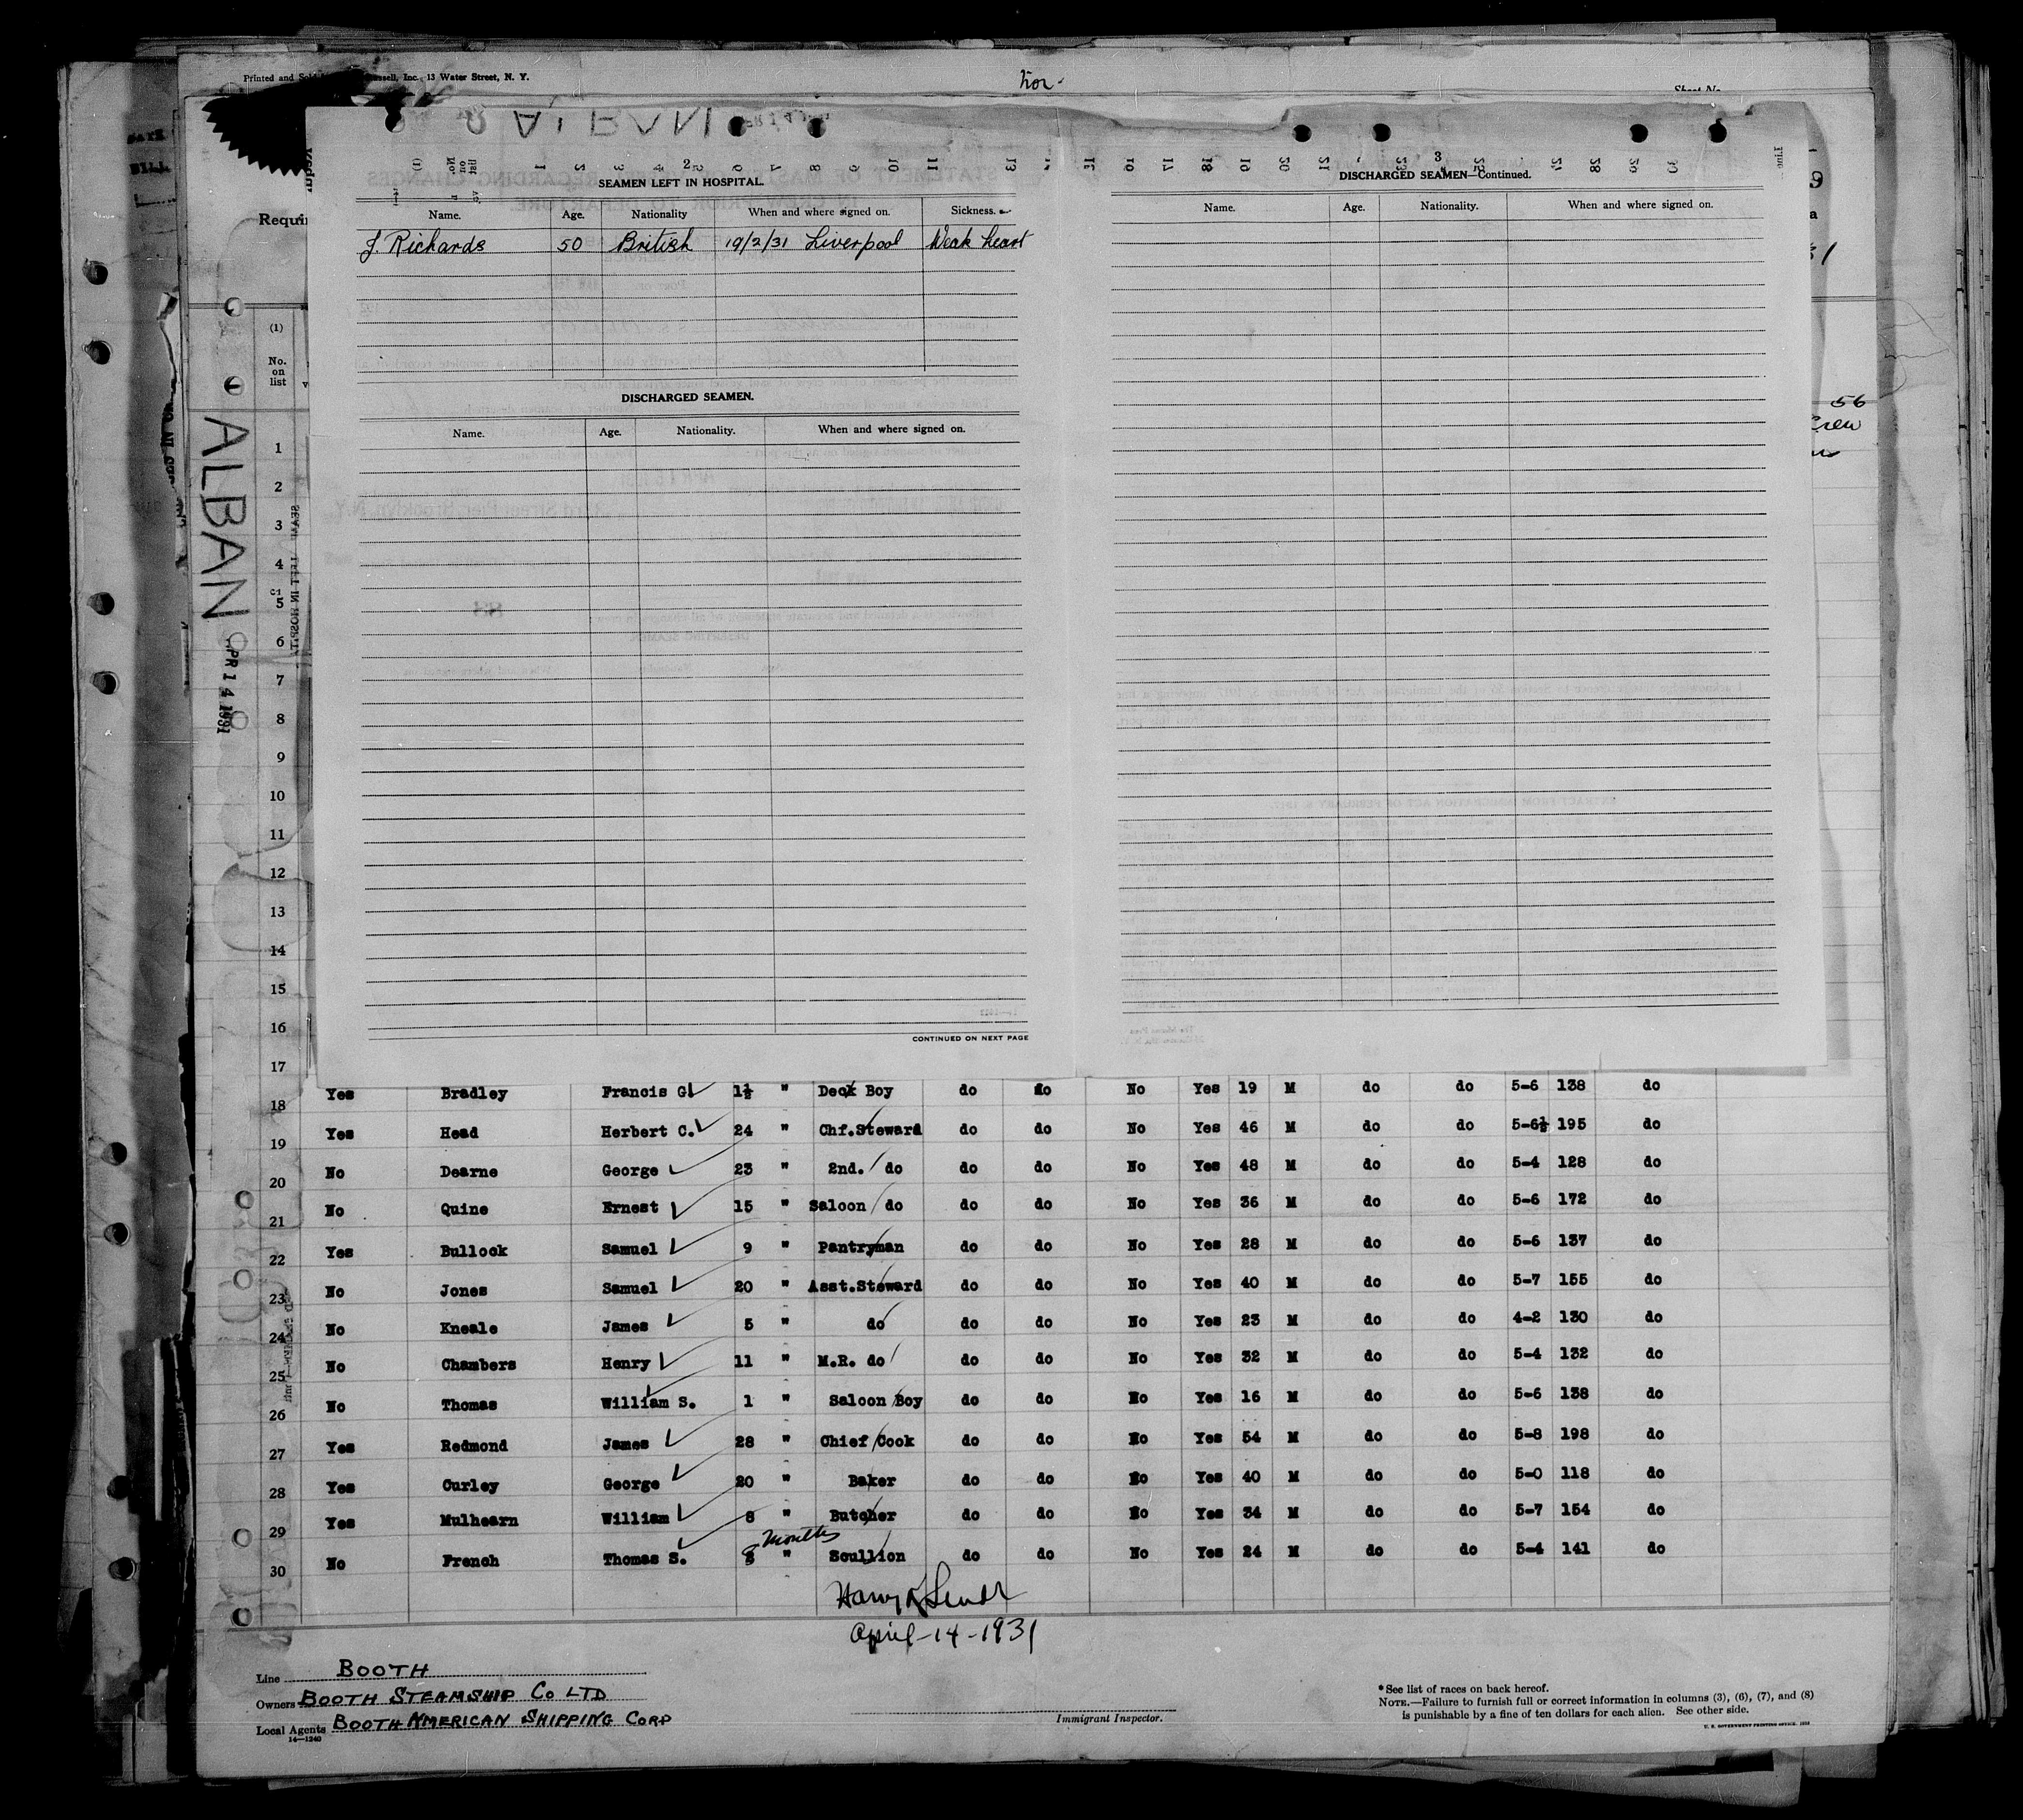 Printed and Sold
ssell, Inc., 13 Water Street, N. Y.
Sheet No.
2
SEAMEN LEFT IN HOSPITAL.
Name. Age. Nationality When and where signed on. Sickness.
J Richards 50 British 19/2/31 Liverpool Weak heart
DISCHARGED SEAMEN.
Name. Age. Nationality. When and where signed on.
CONTINUED ON NEXT PAGE
3
DISCHARGED SEAMEN—Continued.
Name. Age. Nationality. When and where signed on.
Requir
(1)
No. on list
ALBAN
APR 14 1931
56
Crew
1
2
3
4
5
6
7
8
9
10
11
12
13
14
15
16
17
18 Yes Bradley Francis G. 1½ " Deck Boy do do No Yes 19 M do do 5-6 138 do
19 Yes Head Herbert C. 24 " Chf.Steward do do No Yes 46 M do do 5-6½ 195 do
20 No Dearne George 23 " 2nd. do do do No Yes 48 M do do 5-4 128 do
21 No Quine Ernest 15 " Saloon do do do No Yes 36 M do do 5-6 172 do
22 Yes Bullock Samuel 9 " Pantryman do do No Yes 28 M do do 5-6 137 do
23 No Jones Samuel 20 " Asst.Steward do do No Yes 40 M do do 5-7 155 do
24 No Kneale James 5 " do do do No Yes 23 M do do 4-2 130 do
25 No Chambers Henry 11 " M.R. do do do No Yes 32 M do do 5-4 132 do
26 No Thomas William S. 1 " Saloon Boy do do No Yes 16 M do do 5-6 138 do
27 Yes Redmond James 28 " Chief Cook do do No Yes 54 M do do 5-8 198 do
28 Yes Curley George 20 " Baker do do No Yes 40 M do do 5-0 118 do
29 Yes Mulhearn William 8 " Butcher do do No Yes 34 M do do 5-7 154 do
months
30 No French Thomas S. " Scullion do do No Yes 24 M do do 5-4 141 do
Harry
April-14-1931
Line BOOTH
Owners BOOTH STEAMSHIP CO LTD
Local Agents BOOTH AMERICAN SHIPPING CORP
14—1240
Immigrant Inspector.
* See list of races on back hereof.
NOTE.—Failure to furnish full or correct information in columns (3), (6), (7), and (8)
is punishable by a fine of ten dollars for each alien. See other side.
U. S. GOVERNMENT PRINTING OFFICE